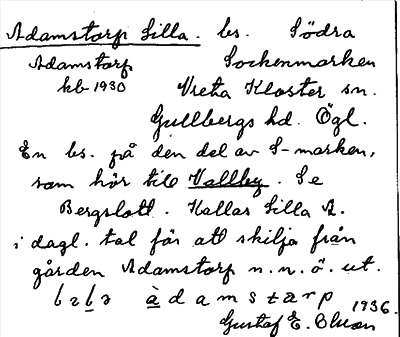 Adamstorp Lilla. bs. Södra
Adamstorp Sockenmarken
kb 1930 Vreta Kloster sn.
Gullbergs hd. Ögl.
En bs. på den del av S-marken,
som hör till Vallby. Se
Bergslott. Kallas Lilla A.
i dagl. tal för att skilja från
gården Adamstorp n.n.ö. ut.
àdamstarp 1936.
Gustaf E.